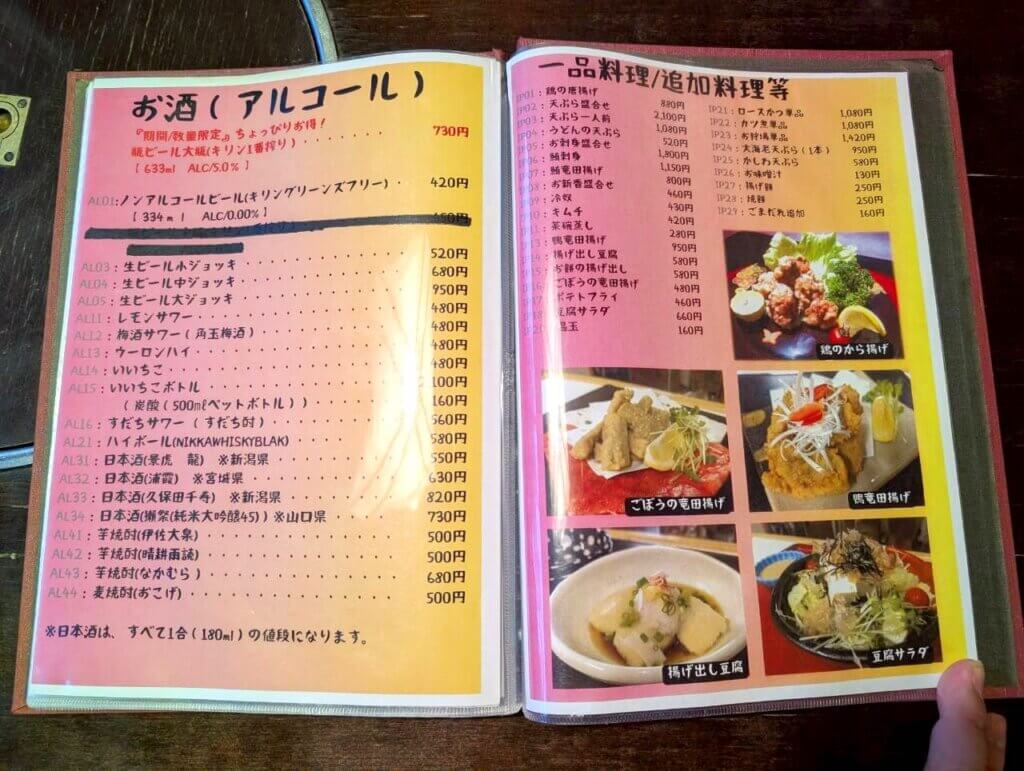 お酒(アルコール)
『期間/数量限定』ちょっぴりお得!
瓶ビール大瓶(キリン1番搾り)・・・・・・・730円
[ 633ml ALC/5.0% ]
AL01:ノンアルコールビール(キリングリーンズフリー)・420円
[ 334ml ALC/0.00% ]
450円
AL03:生ビール小ジョッキ・・・・・・・520円
AL04:生ビール中ジョッキ・・・・・・・680円
AL05:生ビール大ジョッキ・・・・・・・950円
AL11:レモンサワー・・・・・・・480円
AL12:梅酒サワー(角玉梅酒)・・・・・・・480円
AL13:ウーロンハイ・・・・・・・480円
AL14:いいちこ・・・・・・・480円
AL15:いいちこボトル・・・・・・・2,100円
(炭酸(500mlペットボトル))・・・・160円
AL16:すだちサワー(すだち酎)・・・・・・・560円
AL21:ハイボール(NIKKAWHISKYBLAK)・・・・580円
AL31:日本酒(景虎 龍) ※新潟県・・・・・・550円
AL32:日本酒(浦霞) ※宮城県・・・・・・630円
AL33:日本酒(久保田千寿) ※新潟県・・・・・820円
AL34:日本酒(獺祭(純米大吟醸45))※山口県・・・730円
AL41:芋焼酎(伊佐大泉)・・・・・・・500円
AL42:芋焼酎(晴耕雨読)・・・・・・・500円
AL43:芋焼酎(なかむら)・・・・・・・680円
AL44:麦焼酎(おこげ)・・・・・・・500円
※日本酒は、すべて1合(180ml)の値段になります。
一品料理/追加料理等
IP01:鶏の唐揚げ 880円
IP02:天ぷら盛合せ 2,100円
IP03:天ぷら一人前 1,080円
IP04:うどんの天ぷら 520円
IP05:お刺身盛合せ 1,800円
IP06:鮪刺身 1,150円
IP07:鮪竜田揚げ 800円
IP08:お新香盛合せ 460円
IP09:冷奴 430円
IP10:キムチ 420円
IP11:茶碗蒸し 280円
IP13:鴨竜田揚げ 950円
IP14:揚げ出し豆腐 580円
IP15:お餅の揚げ出し 580円
IP16:ごぼうの竜田揚げ 480円
IP17:ポテトフライ 460円
IP18:豆腐サラダ 660円
IP20:温玉 160円
IP21:ロースかつ単品 1,080円
IP22:カツ煮単品 1,080円
IP23:お狩場単品 1,420円
IP24:大海老天ぷら(1本) 950円
IP25:かしわ天ぷら 580円
IP26:お味噌汁 130円
IP27:揚げ餅 250円
IP28:焼餅 250円
IP29:ごまだれ追加 160円
鶏のから揚げ
ごぼうの竜田揚げ
鴨竜田揚げ
揚げ出し豆腐
豆腐サラダ